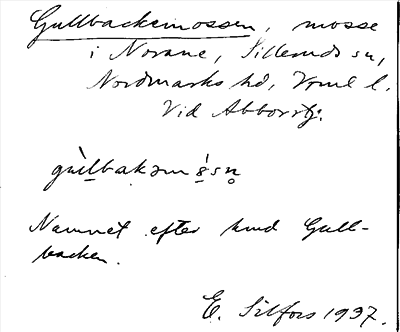 Gullbackemossen, mosse
i Norane, Silleruds sn,
Nordmarks hd, Vrml l.
Vid Abborrtj.
gùlbakəm ó̱sn̥
Namnet efter hmd Gull-
backen.
E. Silfors 1937.